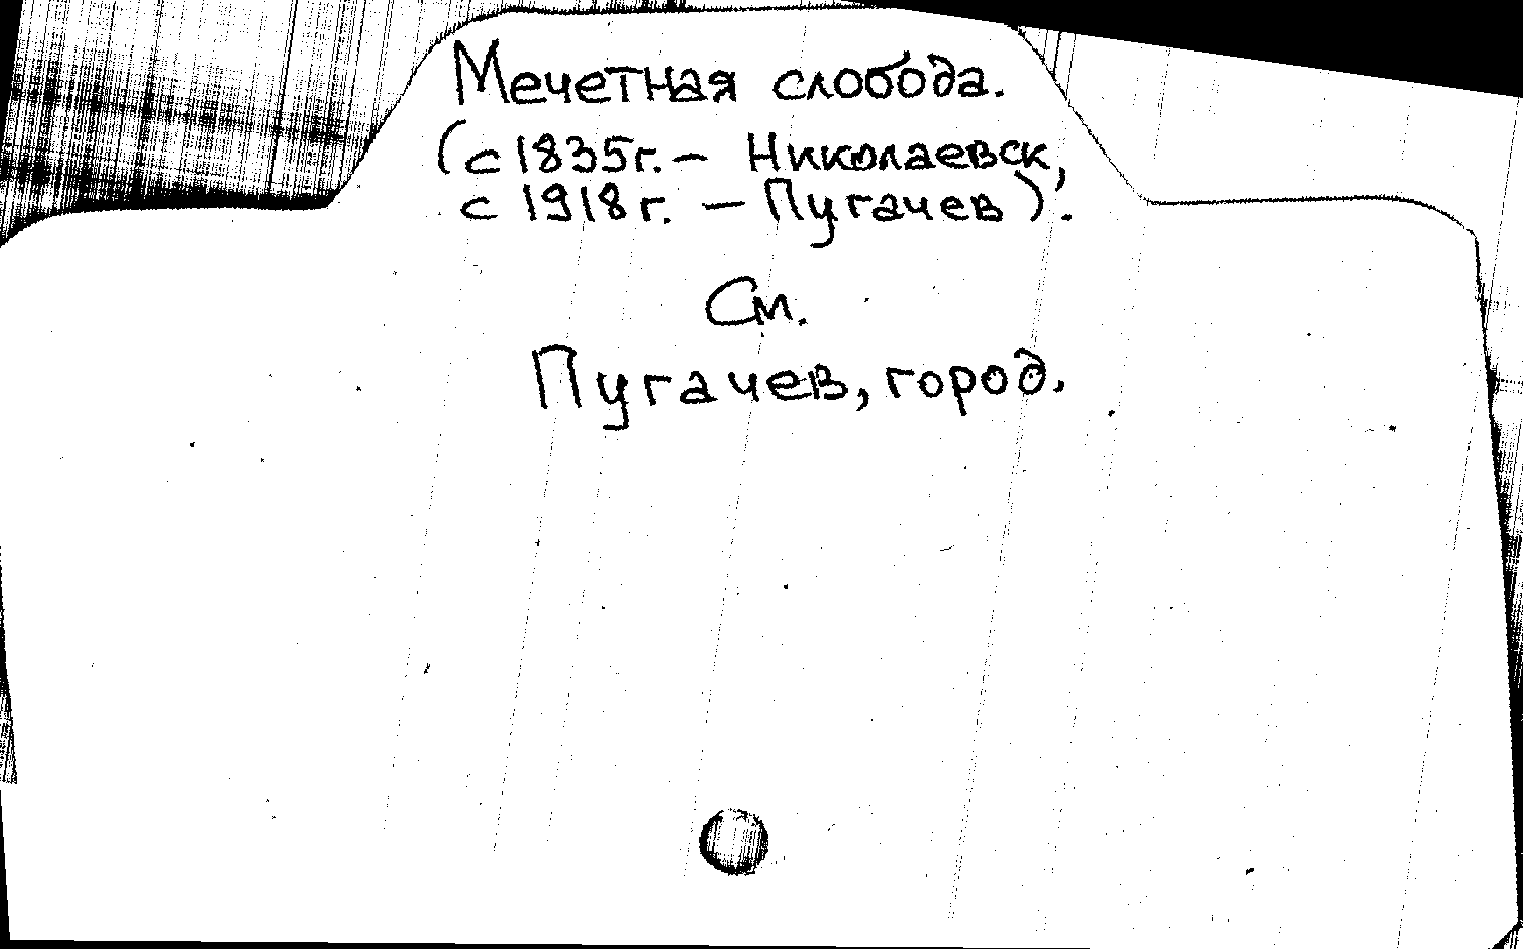 Мечетная слобода.
(с 1835г. – Николаевск,
с 1918г. – Пугачев).
См.
Пугачев, город.